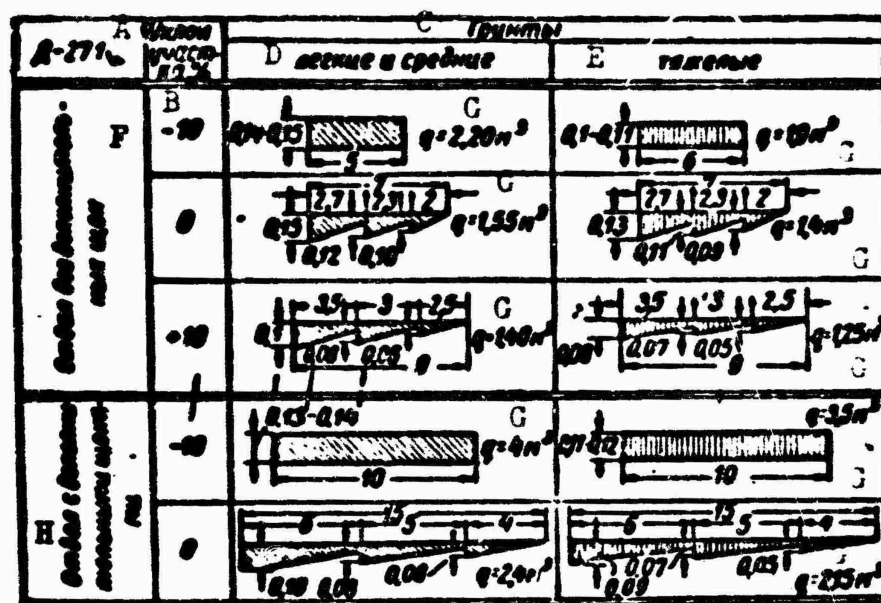 A
C
Д-271
Уклон участ-ка %
Грунты
D
легкие и средние
E
тяжелые
B
F
Отвал без дополнитель-
-10
0,14-0,15
5
G
q=2,20 м³
0,1-0,11
6
q=1,9 м³
G
0
7
2,7 2,3 2
0,15
0,12 0,10
G
q=1,55 м³
7
2,7 2,3 2
0,13
0,11 0,09
q=1,4 м³
G
+10
3,5 3 2,5
0,1
0,08
9
G
q=1,40 м³
3,5 3 2,5
0,08
0,07 0,05
9
q=1,25 м³
G
H
-10
0,13-0,14
10
G
q=4 м³
0,11-0,12
10
q=3,5 м³
G
0
15
6 5 4
0,10 0,08 0,06
q=2,4 м³
15
6 5 4
0,09
0,07
0,05
q=2,15 м³